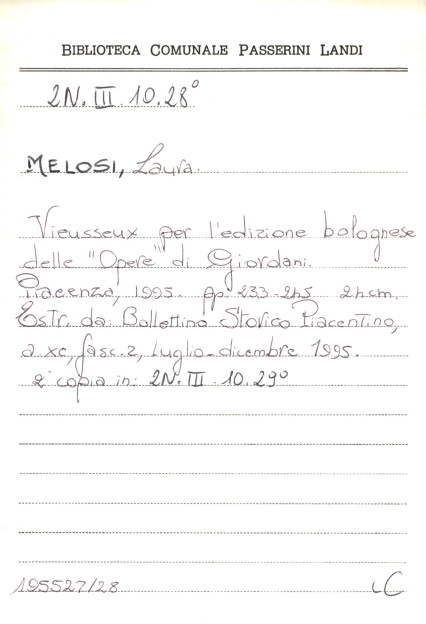 BIBLIOTECA COMUNALE PASSERINI LANDI
2N. III. 10. 28°
MELOSI, Laura.
Vieusseux per l'edizione bolognese
delle "Opere" di Giordani.
Piacenza, 1995. pp. 233-245 24cm.
Estr. da: Bollettino Storico Piacentino,
a. xc, fasc. 2, luglio-dicembre 1995.
2ª copia in: 2N. III. 10. 29°
195527/28